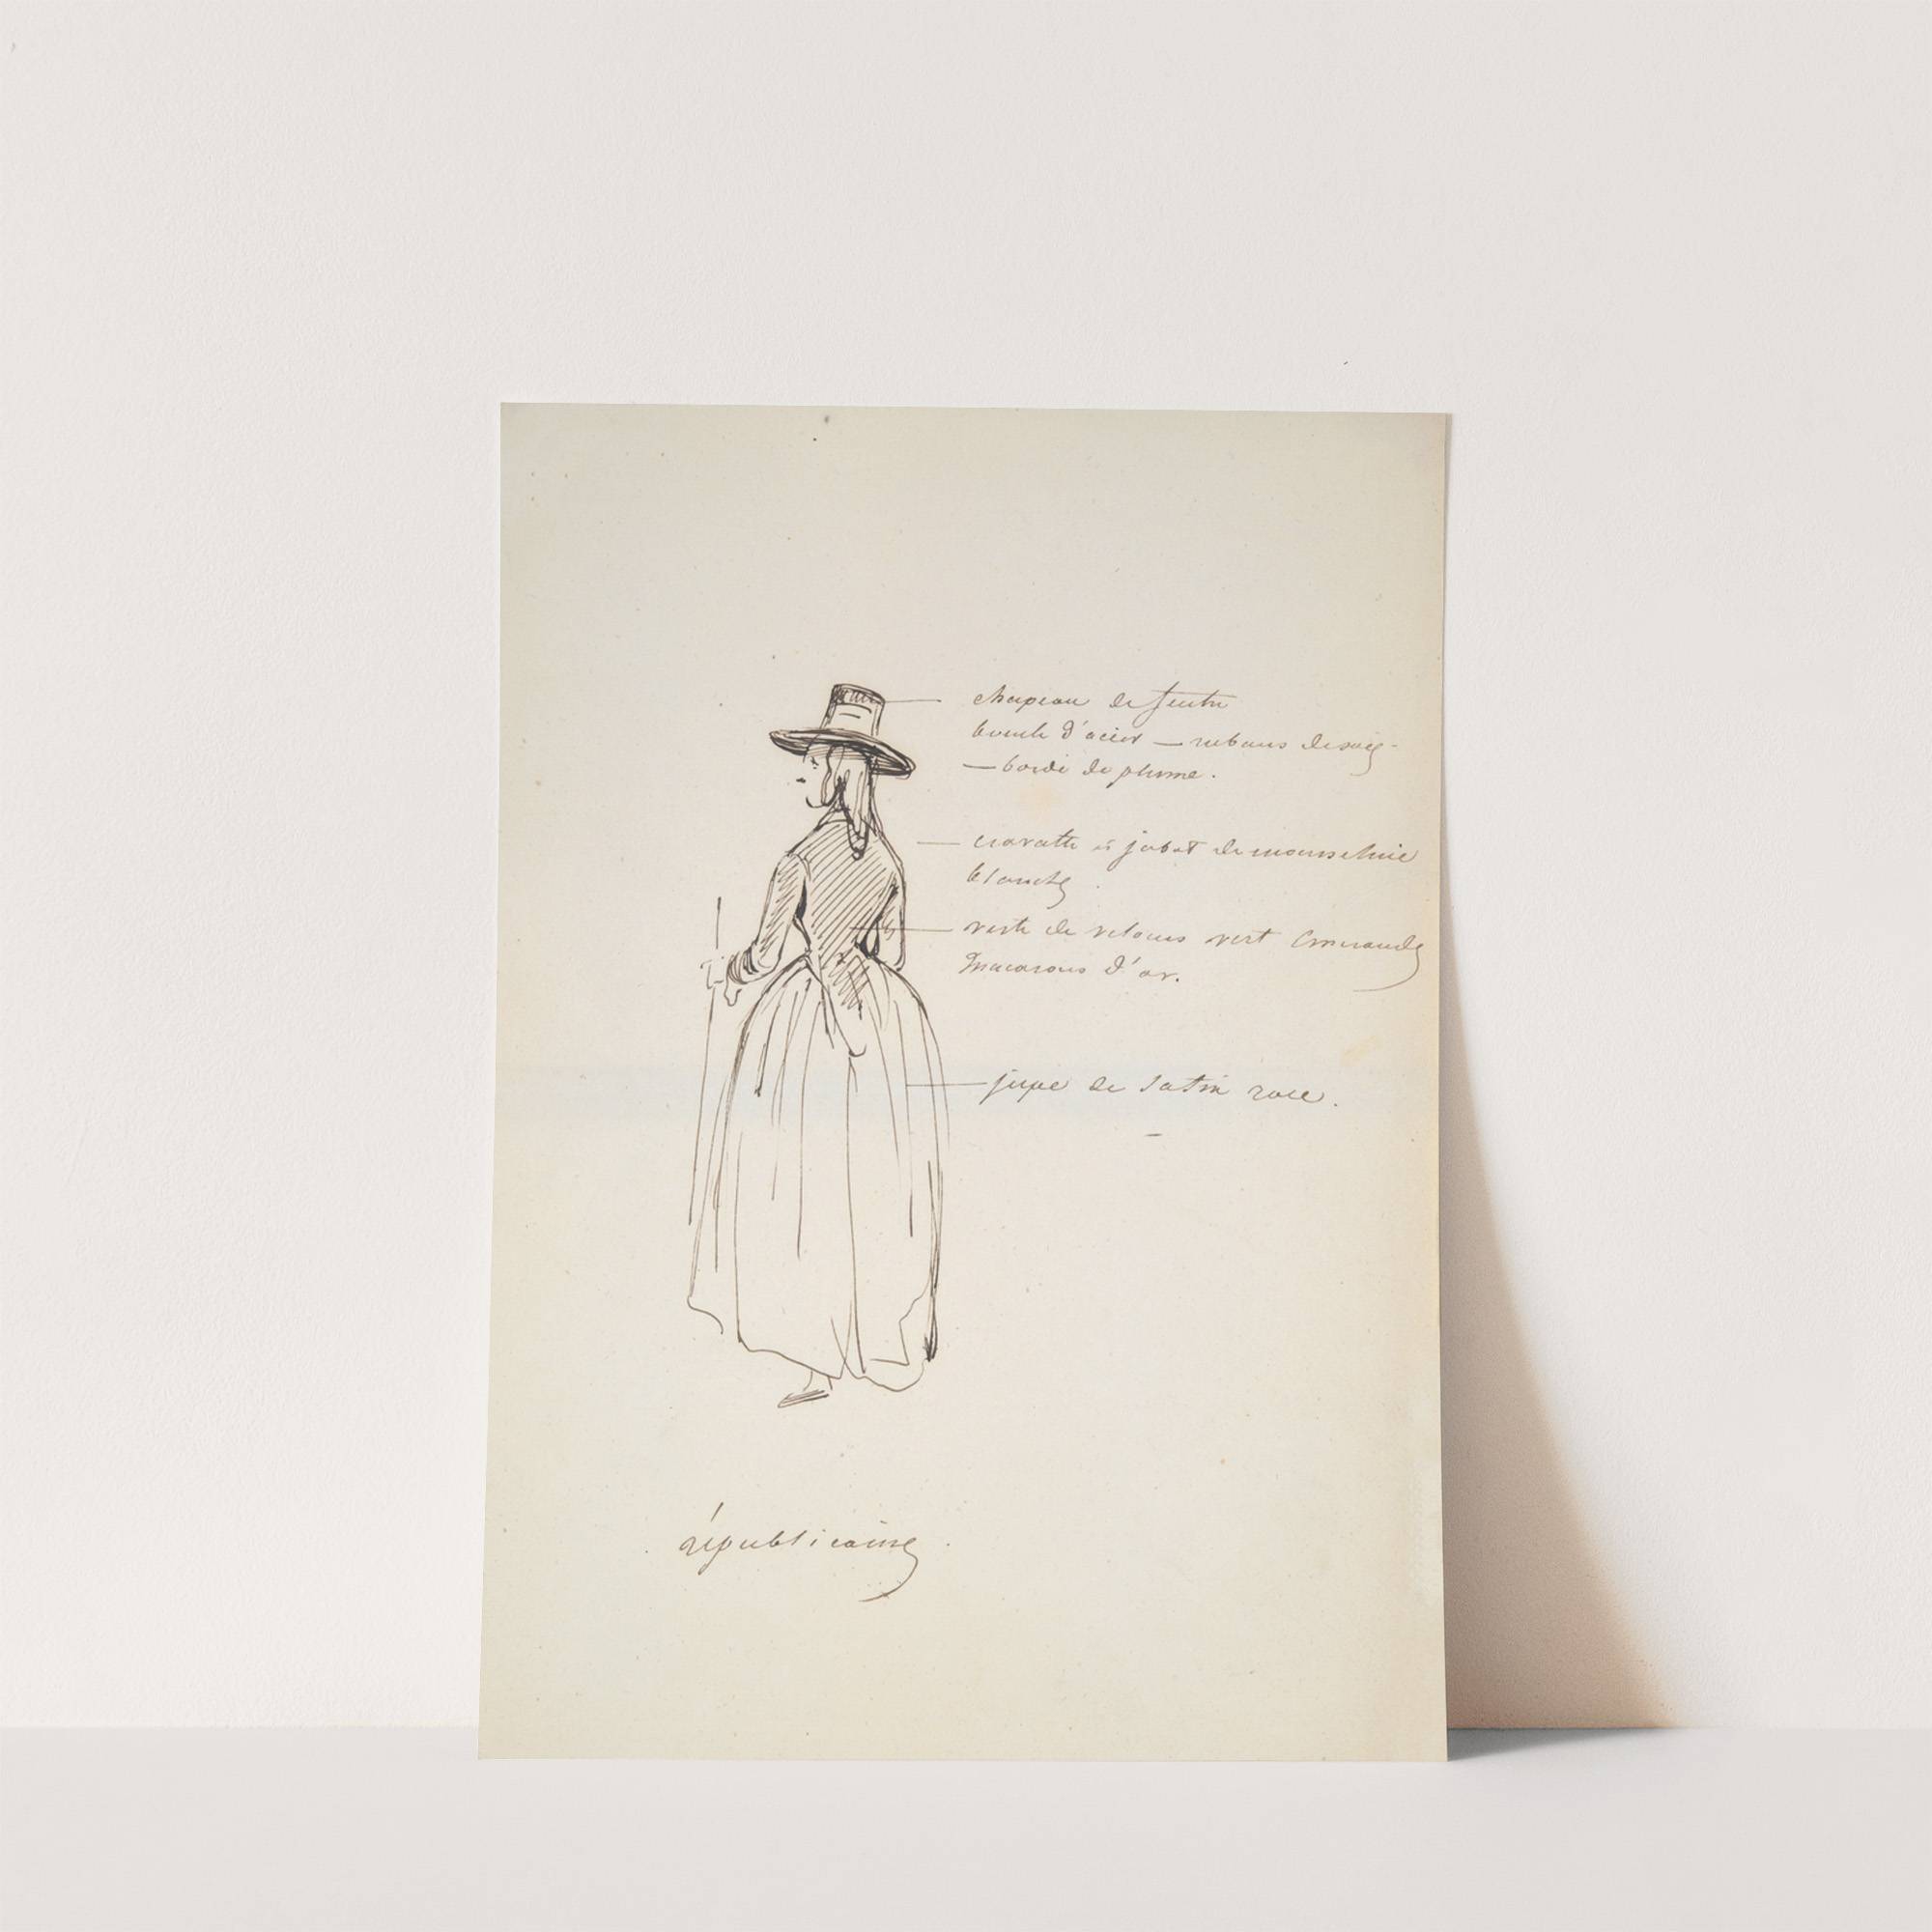 chapeau de feutre
boucle d'acier — rubans de soie -
— bordé de plume.
cravatte et jabot de mousseline
blanche.
veste de velours vert émeraude
macarons d'or.
jupe de satin rose.
républicaine.